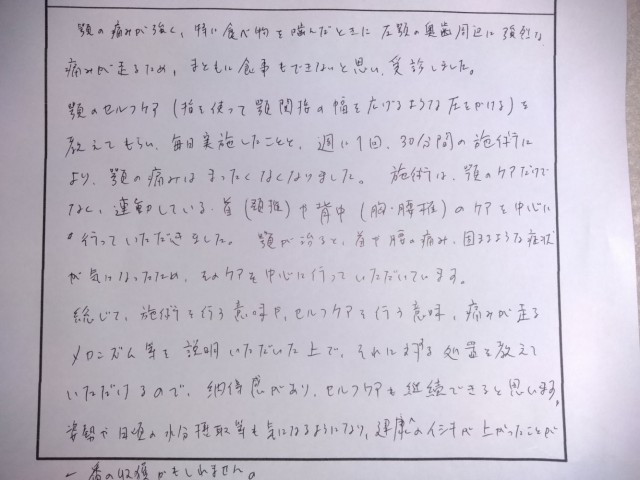 顎の痛みが強く、特に食べ物を噛んだときに左顎の奥歯周辺に強烈な
痛みが走るため、まともに食事もできないと思い、受診しました。
顎のセルフケア(指を使って顎関接の幅を広げるような圧をかける)を
教えてもらい、毎日実施したことと、週に1回、30分間の施術に
より、顎の痛みはまったくなくなりました。 施術は、顎のケアだけで
なく、連動している首(頚椎)や背中(胸・腰椎)のケアを中心に
行っていただきました。 顎が治ると、首や腰の痛み、困るような症状
が気になったため、そのケアを中心に行っていただいています。
総じて、施術を行う意味や、セルフケアを行う意味、痛みが走る
メカニズム等を説明いただいた上で、それに対する処置を教えて
いただけるので、納得感があり、セルフケアも継続できると思います。
姿勢や日頃の水分摂取等も気になるようになり、健康へのイシキが上がったことが
一番の収穫かもしれません。